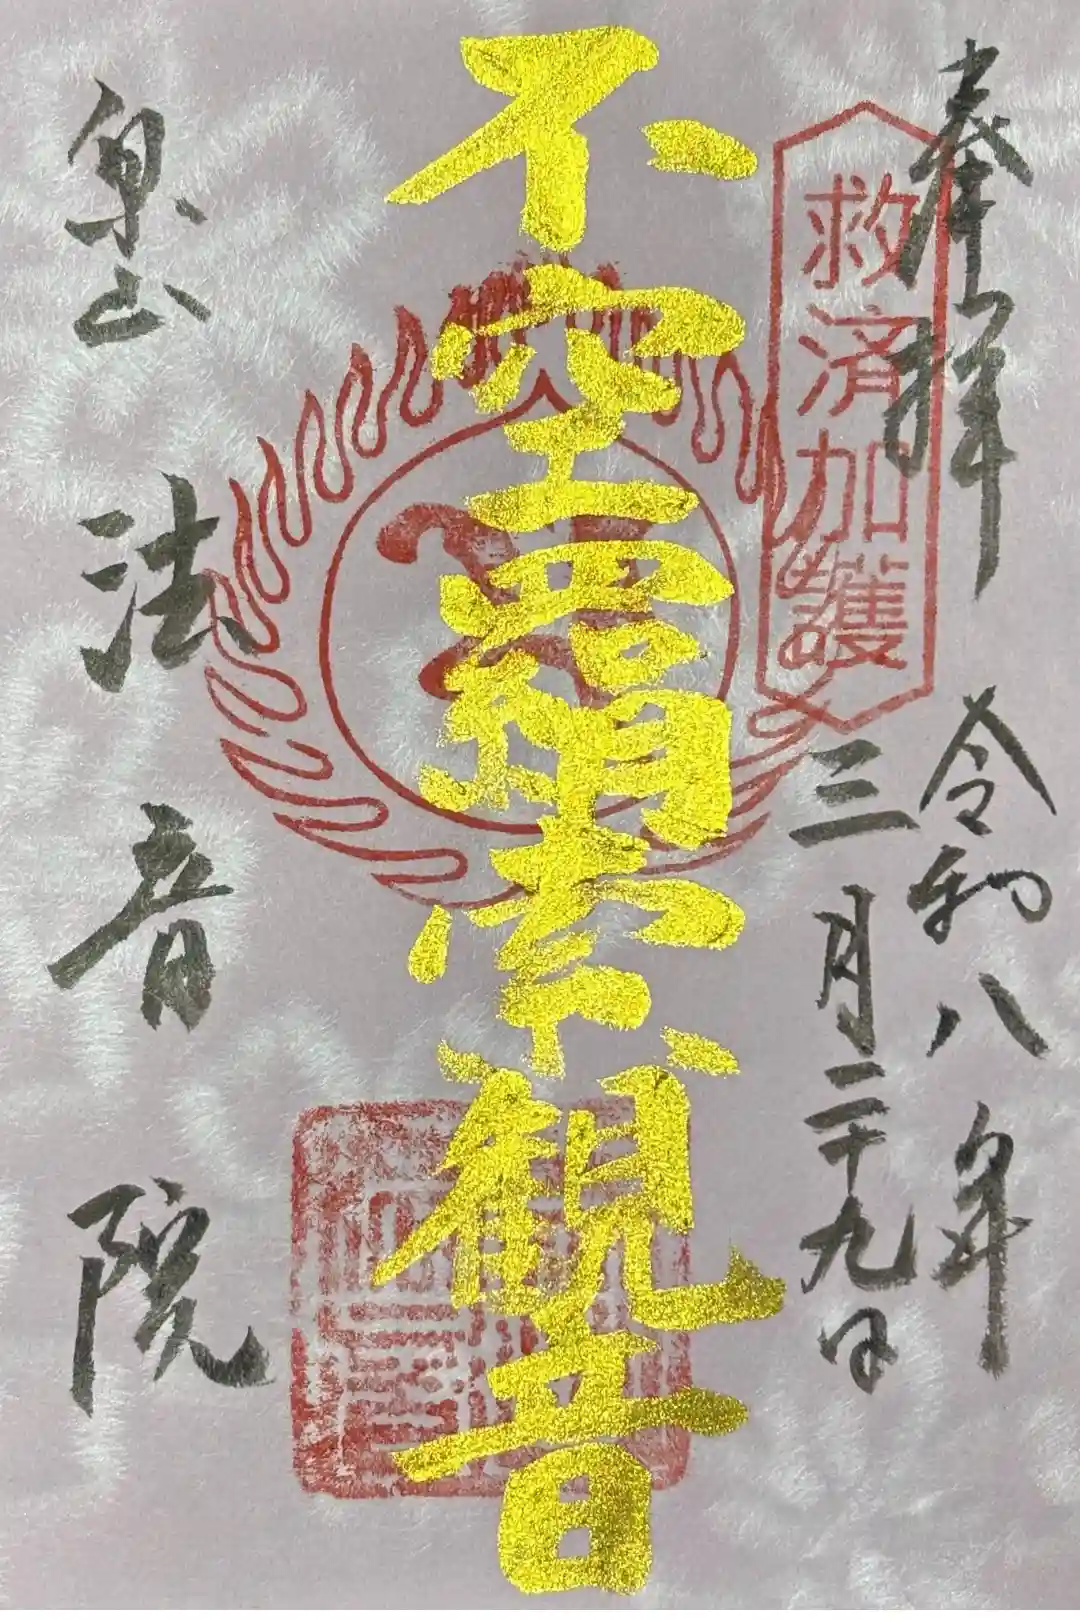 奉拝
令和八年
三月二十九日
救済加護
不空羂索観音
泉山
法音院